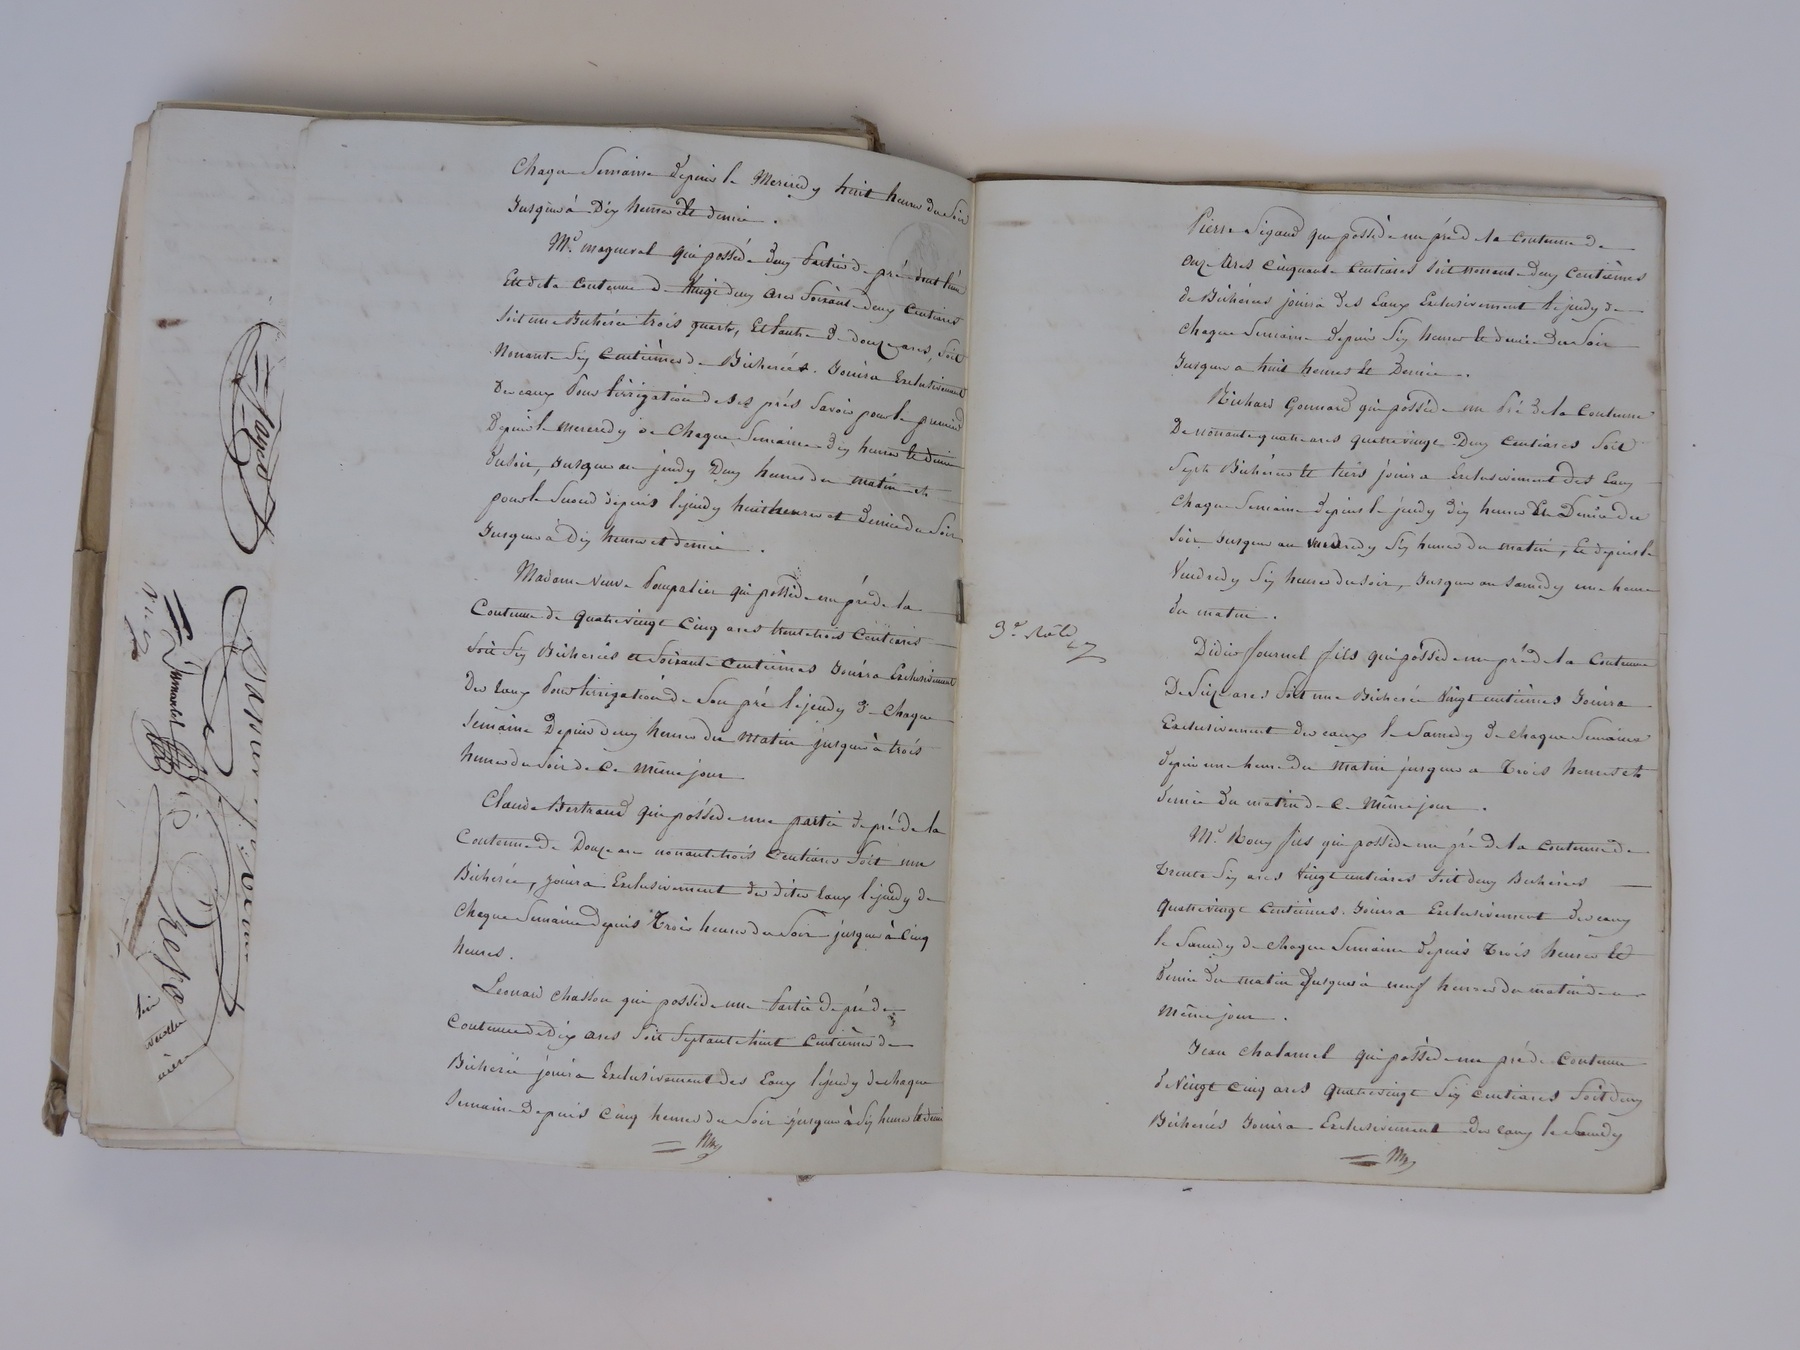 chaque Semaine depuis le Mercredy huit heures du Soir
Jusqu'à Dix heures et demie.
Mr. magneval qui possède deux Parties de pré dont l'une
Est de la contenue de vingt deux ares Soixante deux Centiares
Soit une Bicherée trois quarts, Et l'autre de douze ares, Soit
Nonante Six centièmes de Bicherées. Jouira Exclusivement
Des eaux Pour l'irrigation de ses prés Savoir pour le premier
Depuis le mercredy de Chaque Semaine dix heures et demie
Du soir, Jusques au jeudy Deux heures du matin et
pour le Second depuis le jeudy huit heures et demie du Soir
Jusques à Dix heures et demie.
Madame veuve Pompalier qui possède un pré de la
Contenue de quatre vingt Cinq ares trente trois Centiares
Soit Six Bicherées et Soixante Centièmes Jouira Exclusivement
Des Eaux Pour l'irrigation de Son pré le jeudy de Chaque
Semaine Depuis deux heures du Matin jusques à trois
heures du Soir de Ce Même jour
Claude Bertrand qui possède une partie de pré de la
Contenue de Douze are nonante trois Centiares Soit une
Bicherée, jouira Exclusivement des dites Eaux le jeudy de
Chaque Semaine depuis Trois heures du Soir jusques à Cinq
heures.
Leonard chasson qui possède une Partie de pré de
Contenue de Dix ares Soit Septante huit Centièmes de
Bicherée jouira Exclusivement des Eaux le jeudy de chaque
Semaine Depuis Cinq heures du Soir jusques à Six heures et demie
Pierre Sigaud qui possède un pré de la Contenue de
onze Ares Cinquante Centiares Soit nonante deux Centièmes
de Bicherées jouira des Eaux Exclusivement le jeudy de
Chaque Semaine depuis Six heures et demie du Soir
Jusques a huit heures et Demie.
Richard Gonnard qui possède un Pré de la Contenue
De nonante quatre ares quatre vingt Deux Centiares Soit
Sept Bicherées et tiers jouira Exclusivement des Eaux
Chaque Semaine depuis le jeudy dix heures et Demie du
Soir Jusques au vendredy Six heures du matin, Et depuis le
Vendredy Six heures du soir, Jusques au samedy une heure
du matin.
3e Rôle
Didier Journel fils qui possède un pré de la Contenue
De Seize ares Soit une Bicherée Vingt centièmes Jouira
Exclusivement des eaux le Samedy de chaque Semaine
depuis une heure du Matin jusques a Trois heures et
demie du matin de Ce Même jour.
Mr. Roux fils qui possède un pré de la Contenue de
Trente Six ares Vingt centiares Soit deux Bicherées
quatre vingt Centièmes. Jouira Exclusivement des eaux
le Samedy de chaque Semaine depuis Trois heures et
demie du matin Jusques à neuf heures du matin de ce
Même jour.
Jean chalamel qui possède un pré de Contenue
de Vingt Cinq ares quatre vingt Six Centiares Soit deux
Bicherées Jouira Exclusivement des eaux le Samedy